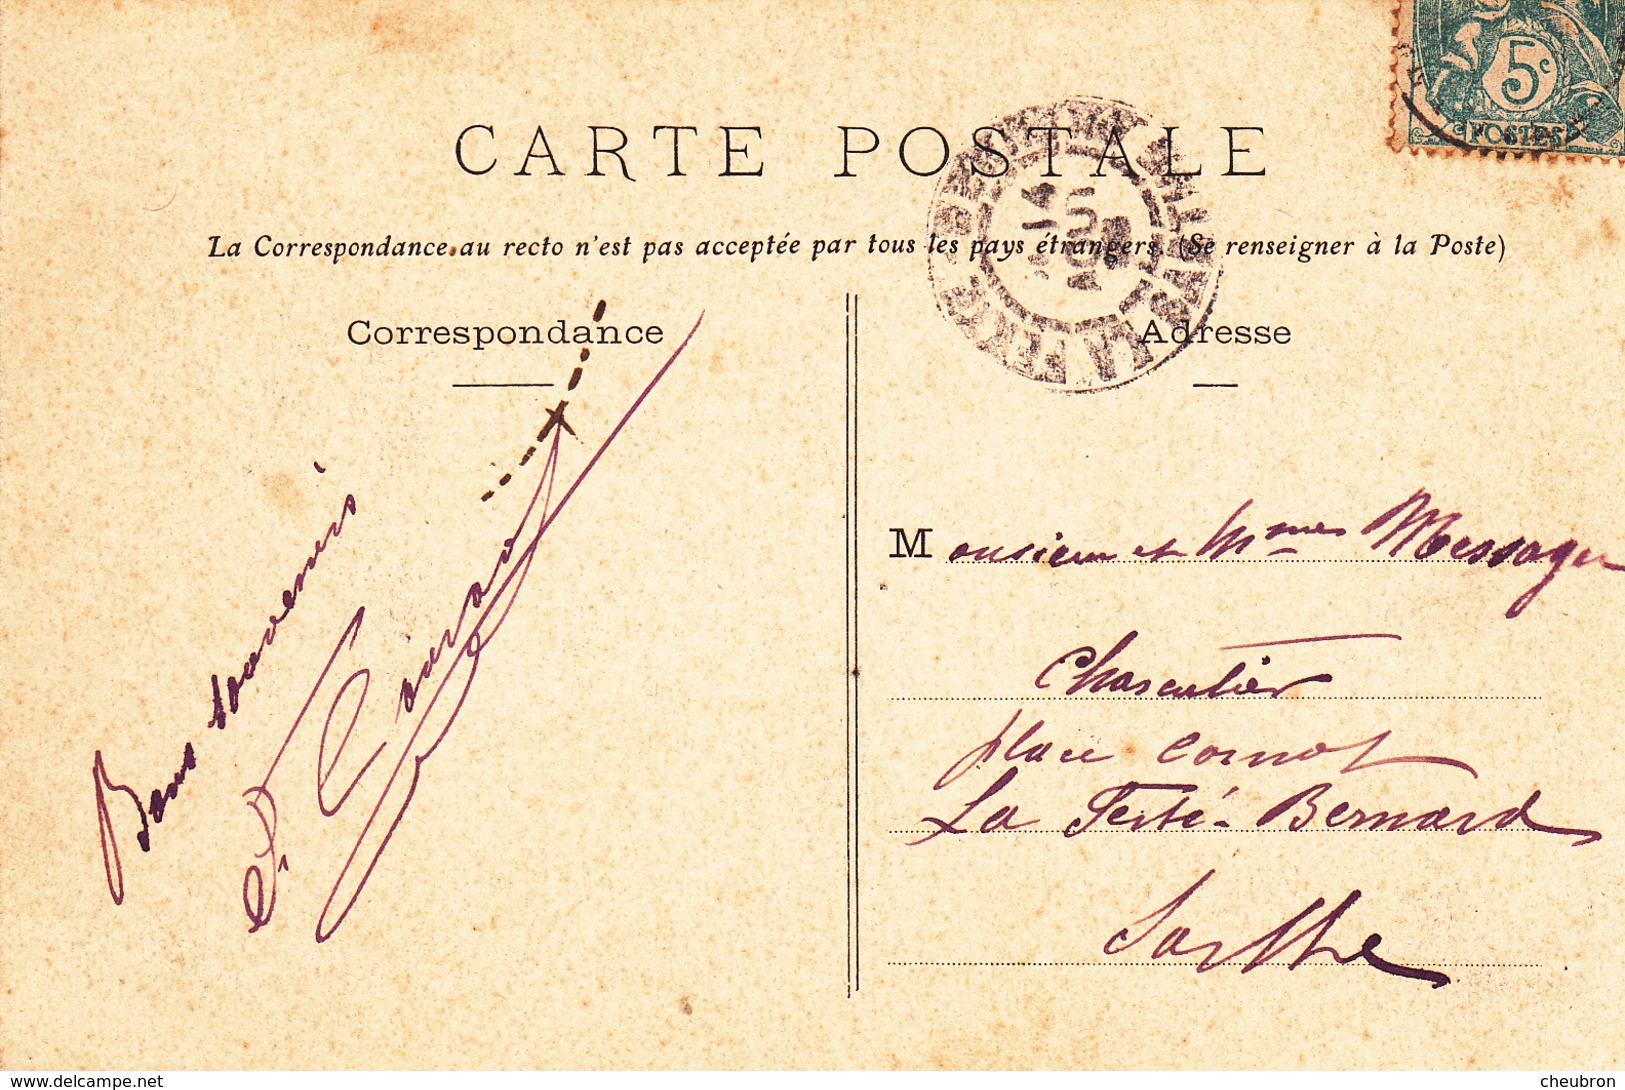 5c
POSTES
CARTE POSTALE
La Correspondance au recto n'est pas acceptée par tous les pays étrangers. (Se renseigner à la Poste)
LA FERTÉ-BERNARD SARTHE
14
AOUT
Correspondance
Bons souvenirs
Adresse
Monsieur et Mmes Messager
Charcutier
place Carnot
La Ferté-Bernard
Sarthe
www.delcampe.net
cheubron